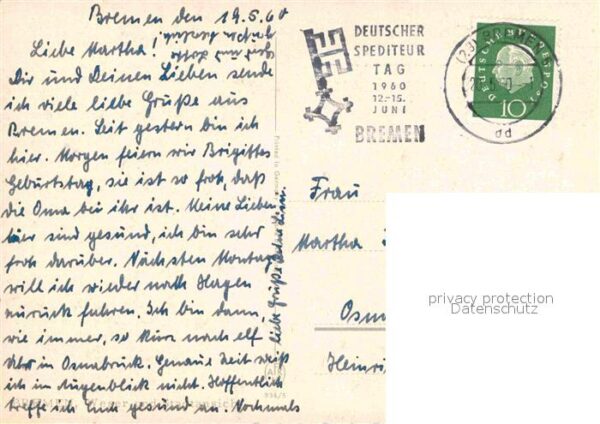 Bremen den 19.5.60
Liebe Martha!
Dir und Deinen Lieben sende
ich viele liebe Grüße aus
Bremen. Seit gestern bin ich
hier. Morgen feiern wir Brigittes
Geburtstag, sie ist so froh, daß
die Oma bei ihr ist. Meine Lieben
hier sind gesund, ich bin sehr
froh darüber. Nächsten Montag
will ich wieder nach Hagen
zurück fahren. Ich bin dann,
wie immer, so kurz nach elf
Uhr in Osnabrück. Genaue Zeit weiß
ich im Augenblick nicht. Hoffentlich
treffe ich Euch gesund an. Nochmals
liebe Grüße
DEUTSCHER
SPEDITEUR
TAG
1960
12.-15.
JUNI
BREMEN
DEUTSCHE BUNDESPOST
10
dd
Frau
Martha
Osn
Heinri
privacy protection
Datenschutz
BREMEN, Weser